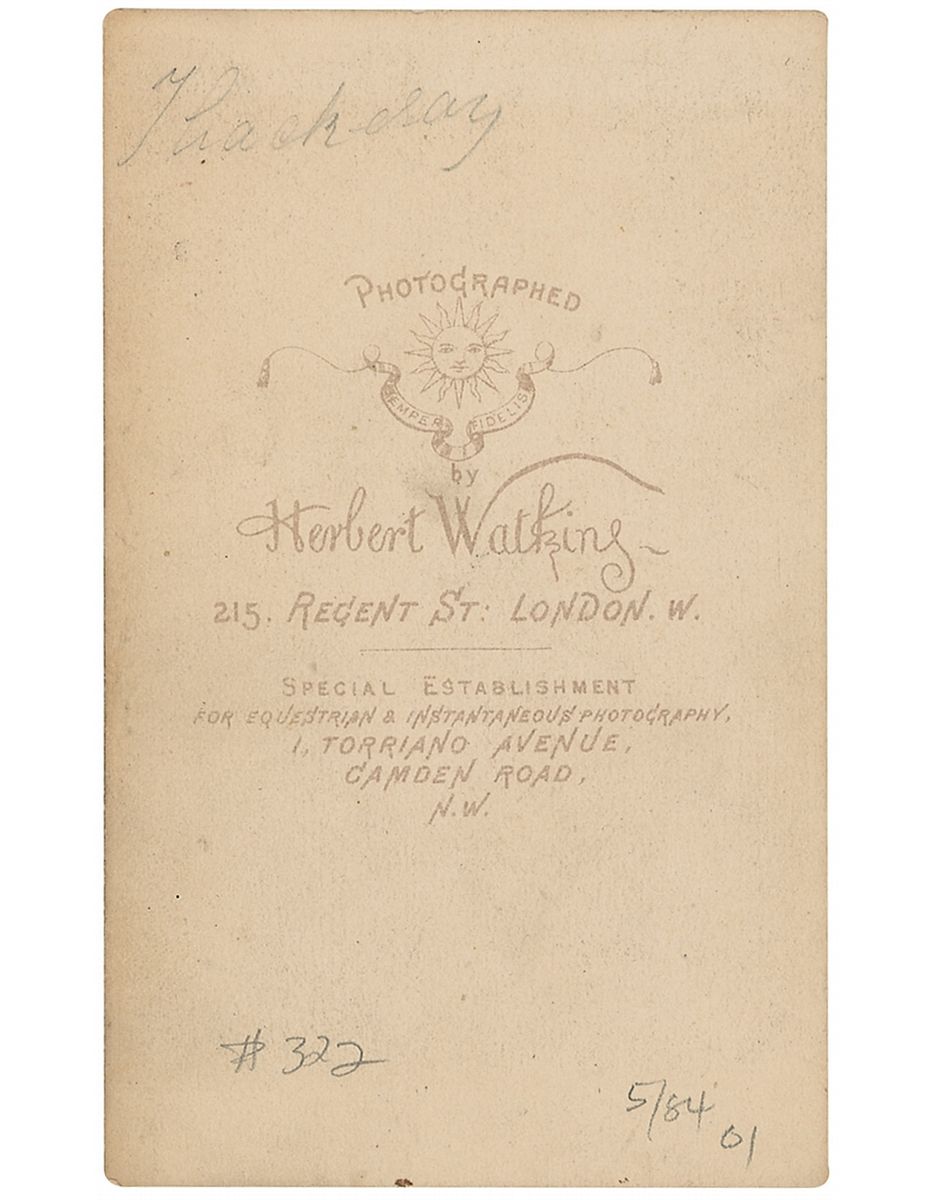 Thackeray
PHOTOGRAPHED
SEMPER FIDELIS
by
Herbert Watkins
215. REGENT ST: LONDON. W.
SPECIAL ESTABLISHMENT
FOR EQUESTRIAN & INSTANTANEOUS PHOTOGRAPHY,
1, TORRIANO AVENUE,
CAMDEN ROAD,
N.W.
# 322
5/84
01